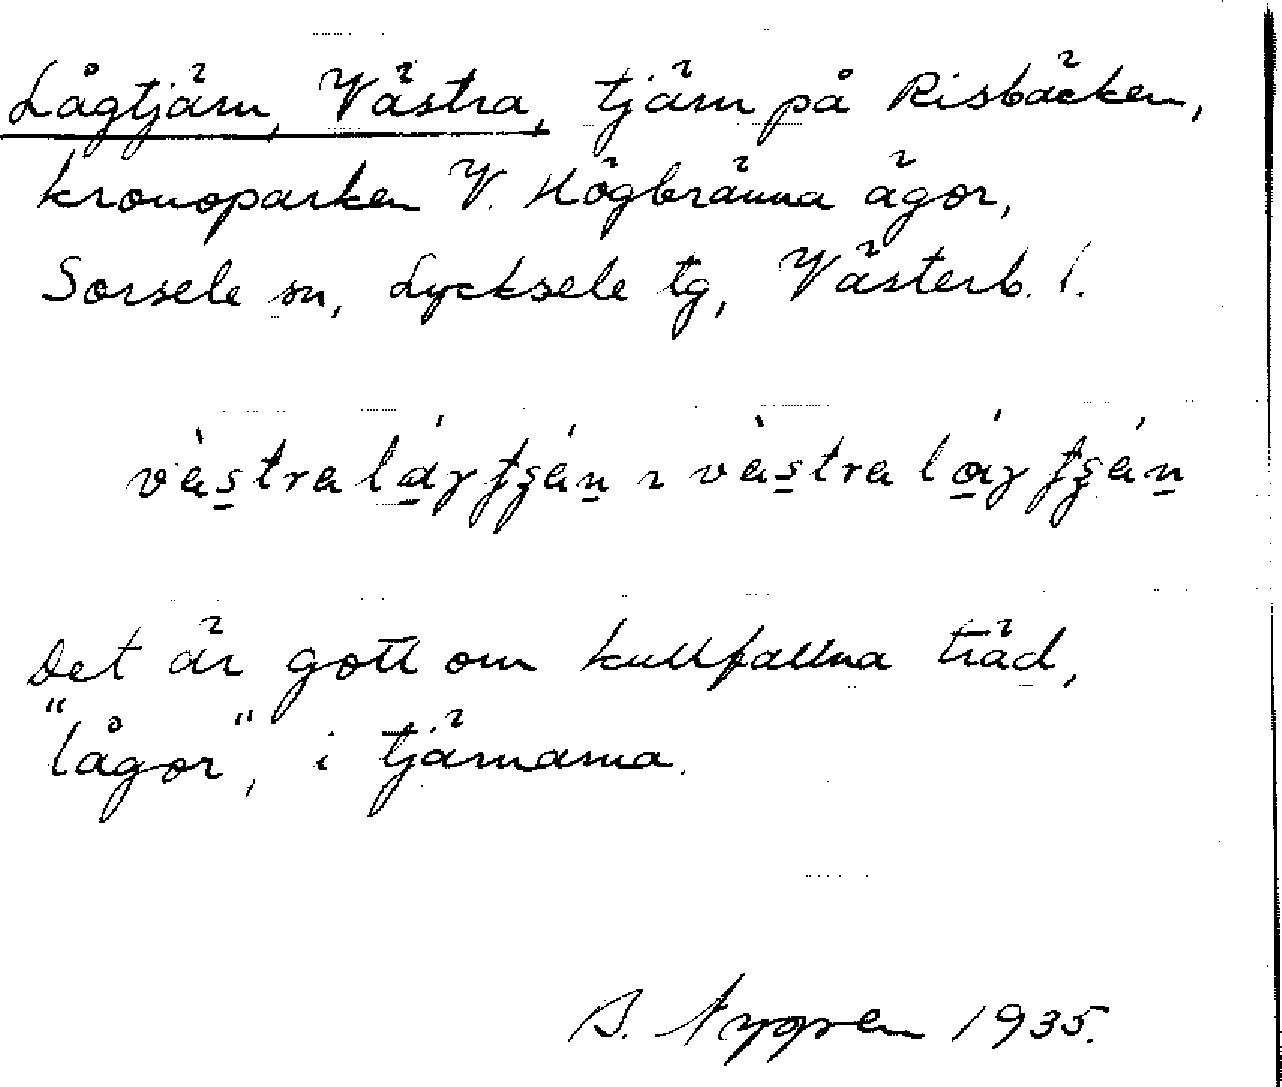 Lågtjärn, Västra, tjärn på Risbäcken,
kronoparken V. Högbränna ägor,
Sorsele sn, Lycksele tg, Västerb. l.
Det är gott om kullfallna träd,
"lågor", i tjärnarna.
Nygren 1935.